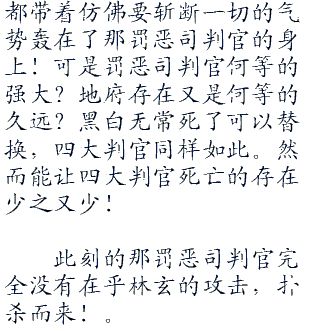 都带着仿佛要斩断一切的气
势轰在了那罚恶司判官的身
上！可是罚恶司判官何等的
强大？地府存在又是何等的
久远？黑白无常死了可以替
换，四大判官同样如此。然
而能让四大判官死亡的存在
少之又少！
此刻的那罚恶司判官完
全没有在乎林玄的攻击，扑
杀而来！。